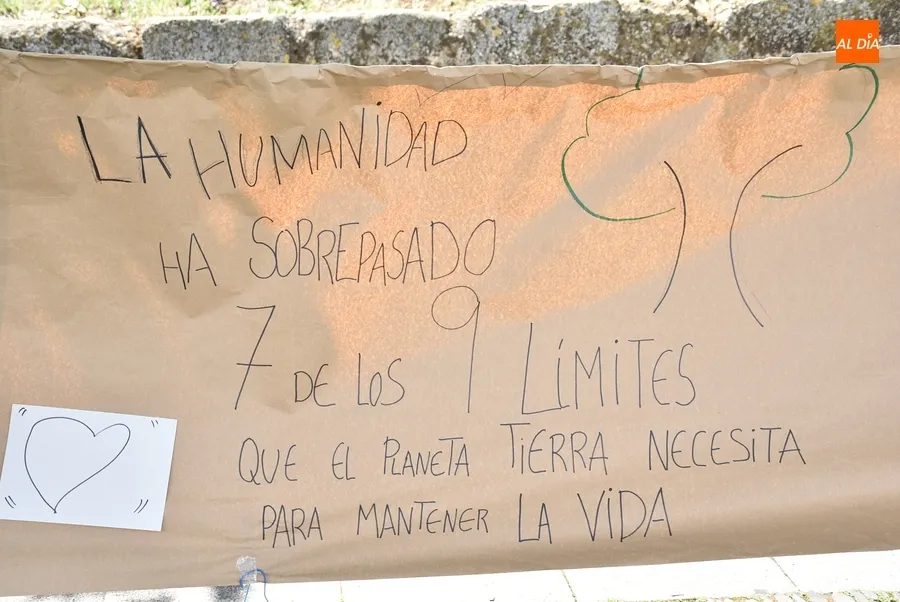 AL DÍA
LA HUMANIDAD
HA SOBREPASADO
7 DE LOS 9 LÍMITES
QUE EL PLANETA TIERRA NECESITA
PARA MANTENER LA VIDA